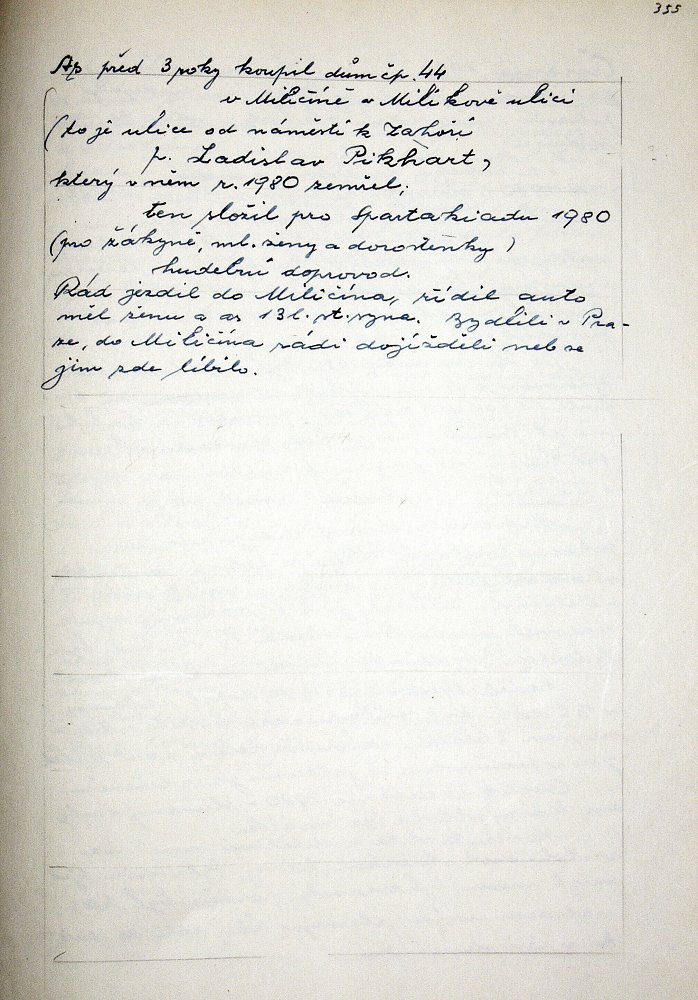 355
As před 3 roky koupil dům čp. 44
v Miličíně v Milíkově ulici
(to je ulice od náměstí k Záhoří
p. Ladislav Pikhart,
který v něm r. 1980 zemřel;
ten složil pro Spartakiadu 1980
(pro žákyně, ml. ženy a dorostenky)
hudební doprovod.
Rád jezdil do Miličína, řídil auto
měl ženu a as 13 l. st. syna. Bydlili v Pra-
ze, do Miličína rádi dojížděli neb se
jim zde líbilo.